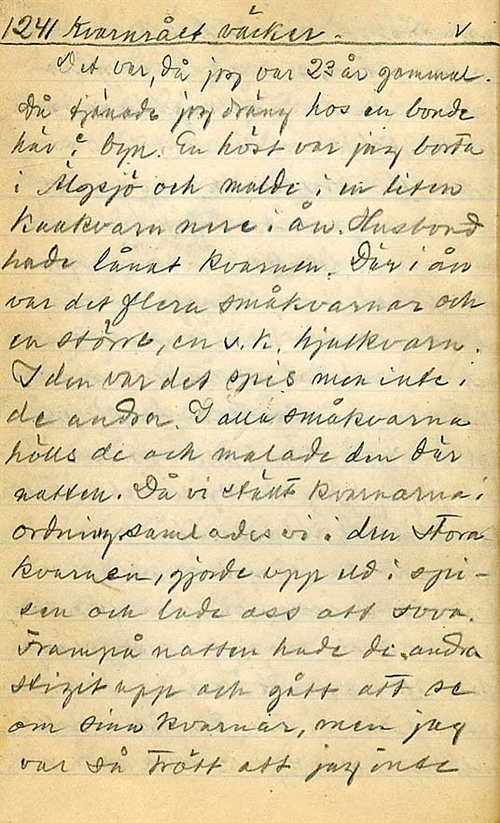 1241 Kvarnrået väcker. v
Det var, då jag var 23 år gammal.
Då tjänade jag dräng hos en bonde
här i byn. En höst var jag borta
i Älgsjö och malde i en liten
kaakvarn nere i ån. Husbond
hade lånat kvarnen. Där i ån
var det flera småkvarnar och
en större, en s.k. hjulkvarn.
I den var det spis men inte i
de andra. I alla småkvarna
hölls de och malade den där
natten. Då vi ställt kvarnarna i
ordning samlades vi i den stora
kvarnen, gjorde upp eld i spi-
sen och lade oss att sova.
Frampå natten hade de andra
stigit upp och gått att se
om sina kvarnar, men jag
var så trött att jag inte